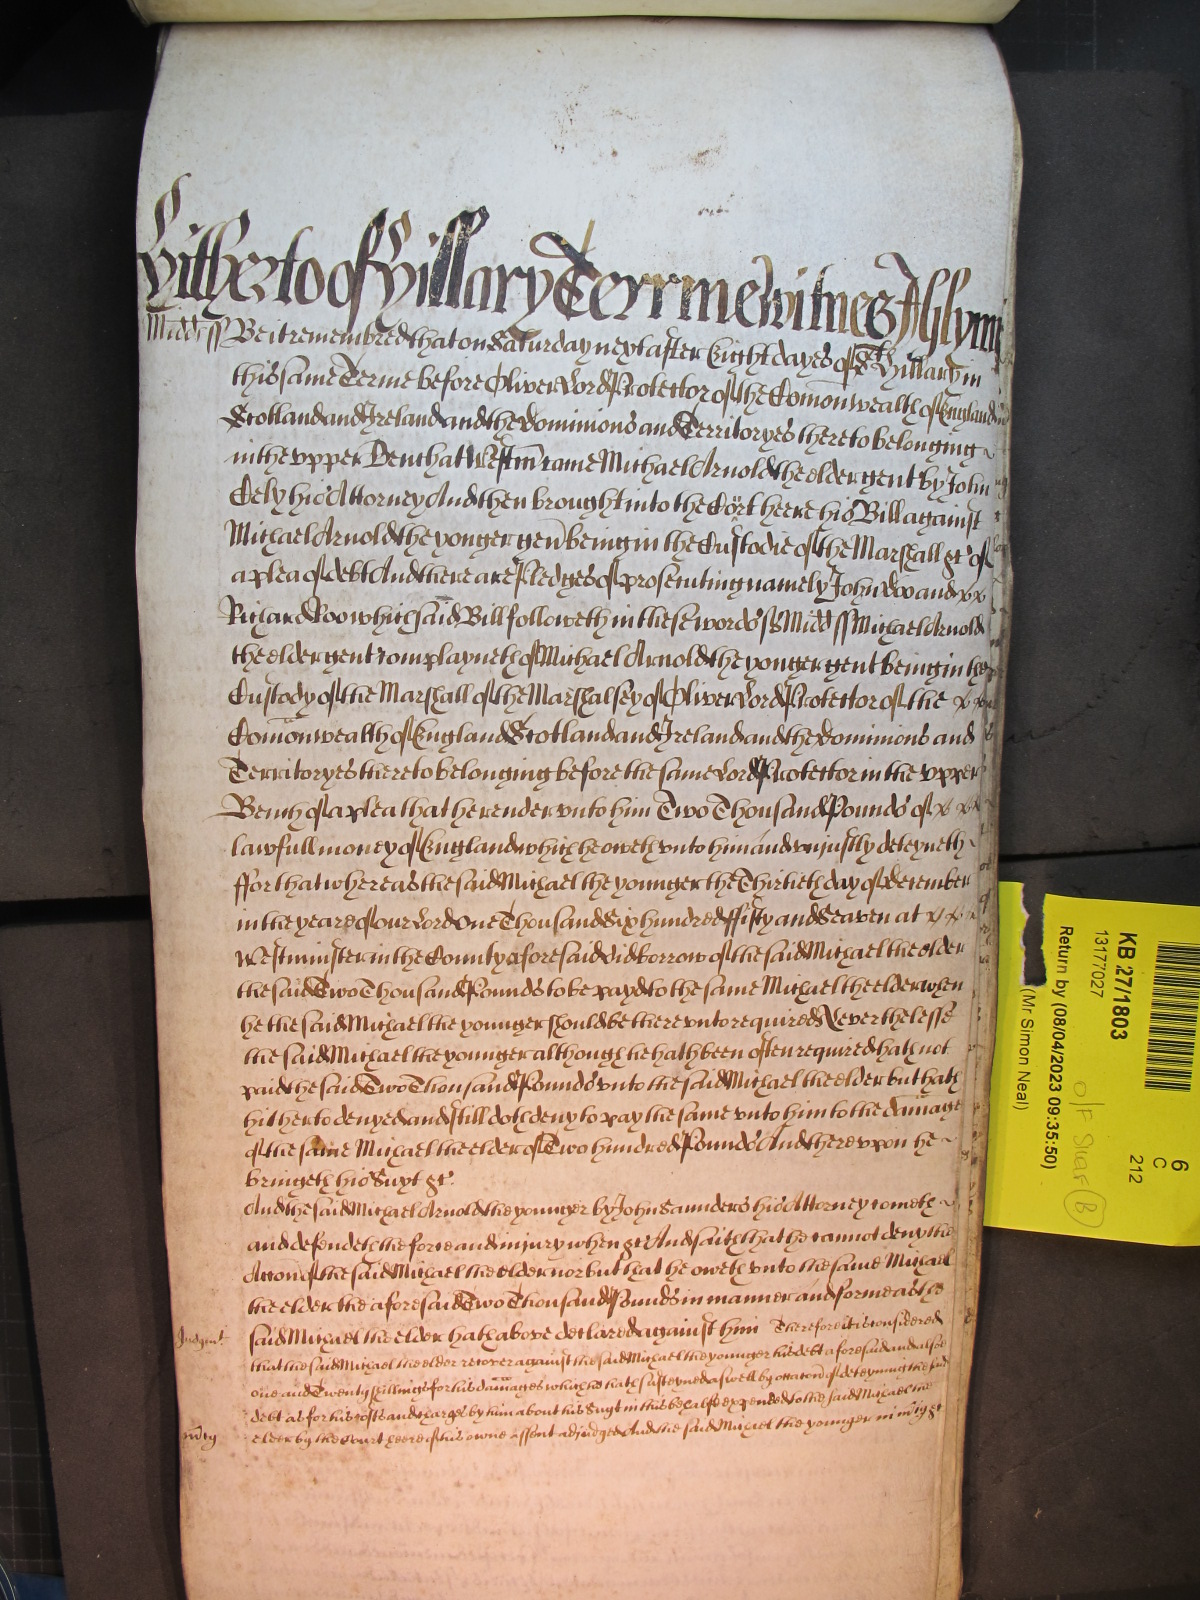 Hitherto of Hillary Terme witnes J Glynn
Midd ss Be it remembred that on Saturday next after Eight dayes of St Hillary in
this same Terme before Oliver Lord Protector of the Comonwealth of England
Scotland and Ireland and the Dominions and Territoryes thereto belonging
in the vpper Bench at Westm came Michael Arnold the elder gent by John
Cely his Attorney And then brought into the Cort here his Bill against
Michael Arnold the yonger gen being in the Custodie of the Marshall &c of
a plea of debt And there are Pledges of prosecuting namely John Doo and
Richard Roo which said Bill followeth in these words ss Midd ss Michael Arnold
the elder gent complayneth of Michael Arnold the yonger gent being in the
Custody of the Marshall of the Marshalsey of Oliver Lord Protector of the
Comonwealth of England Scotland and Ireland and the Dominions and
Territoryes thereto belonging before the same Lord Protector in the vpper
Bench of a plea that he render vnto him Two Thousand Pounds of
lawfull money of England which he oweth vnto him and vniustly deteyneth
ffor that whereas the said Michael the younger the Thirtieth day of December
in the yeare of our Lord One Thousand Six hundred ffifty and Seaven at
Westminster in the County aforesaid did borrow of the said Michael the elder
the said Two Thousand Pounds to be payd to the same Michael the elder when
he the said Michael the younger should be therevnto required Neverthelesse
the said Michael the younger although he hath been often required hath not
paid the said Two Thousand Pounds vnto the said Michael the elder but hath
hitherto denyed and still doth deny to pay the same vnto him to the damage
of the same Michael the elder of Two hundred Pounds And therevpon he
bringeth his Suyt &c
And the said Michael Arnold the younger by John Saunders his Attorney cometh
and defendeth the force and injury when &c And saith that he cannot deny the
Accon of the said Michael the elder nor but that he oweth vnto the same Michael
the elder the aforesaid Two Thousand Pounds in manner and forme as the
said Michael the elder hath above declared against him Therefore it is considered
Judgmt
that the said Michael the elder recover against the said Michael the younger his debt aforesaid and alsoe
one and Twenty shillings for his damages which he hath susteyned aswell by occacon of deteyning the said
debt as for his costs and charges by him about his Suyt in this behalfe expended to the said Michael the
elder by the Court heere of his owne assent adjudged And the said Michael the younger in mcy &c
mcy
KB 27/1803
13177027
Return by (08/04/2023 09:35:50)
(Mr Simon Neal)
6
C
212
O/F Shelf B